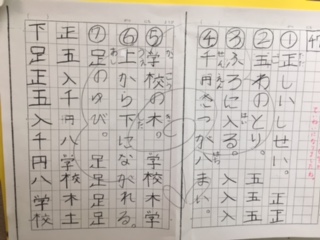 ①正しいしせい。 正正
②五わのとり。 五五五
③ふろに入る。 入入入
④千円さつが八まい。
⑤学校の木。 学校木
⑥上から下にながれる。
⑦足のゆび。 足足足
正五入千円八学校木土
下足正五入千円八学校